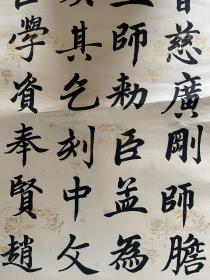 慈廣剛師膽
師勅臣孟為
其乞刻中文
學資奉賢趙